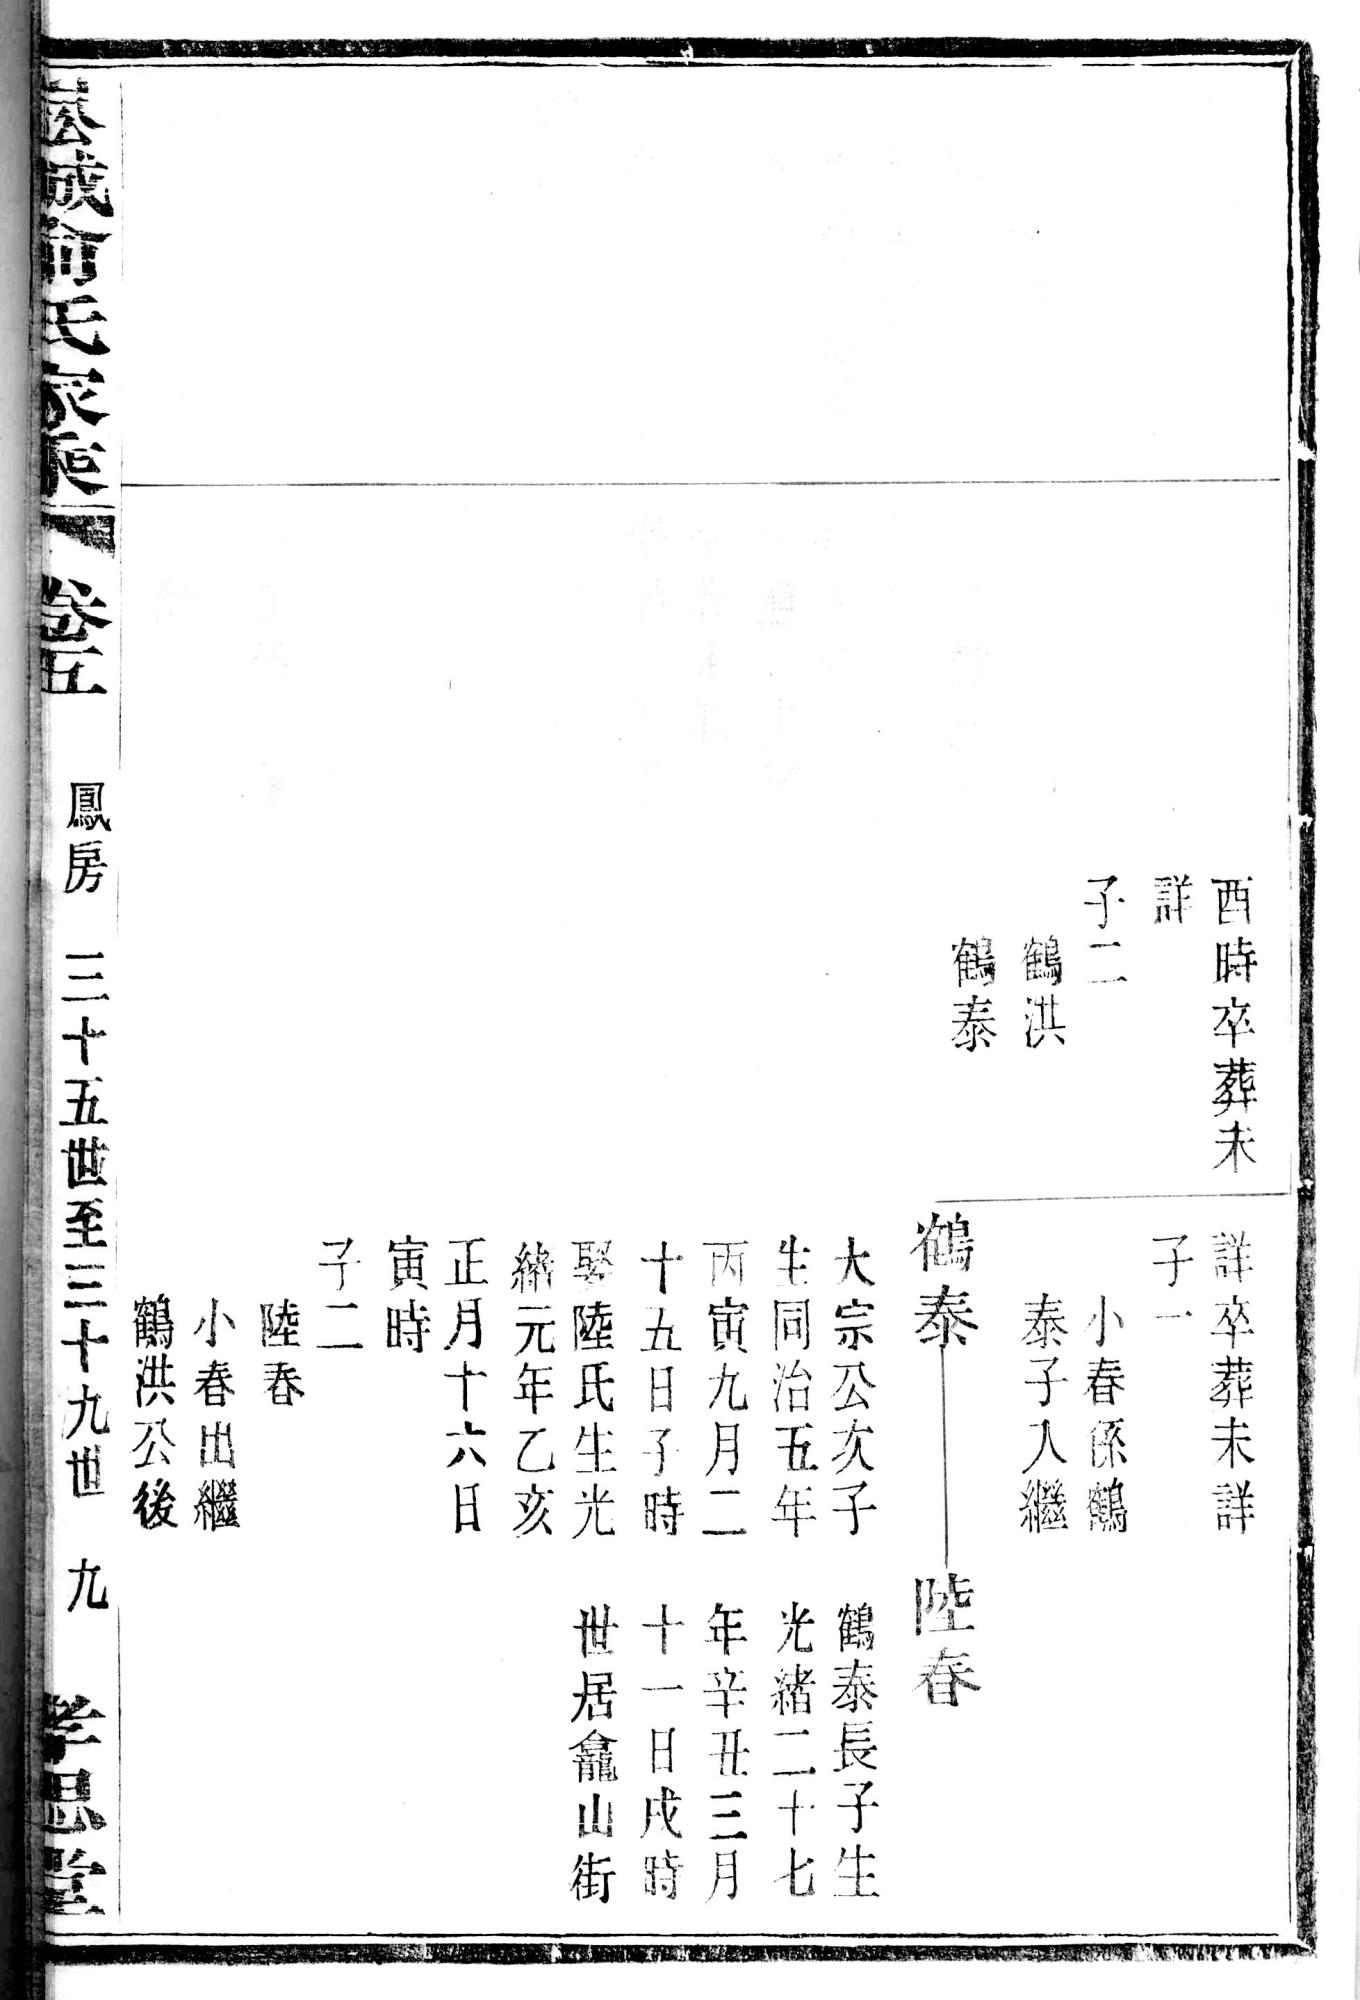 酉時卒葬未
詳
子二
鶴洪
鶴泰
詳卒葬未詳
子一
小春係鶴
泰子入繼
鶴泰
大宗公次子
生同治五年
丙寅九月二
十五日子時
娶陸氏生光
緒元年乙亥
正月十六日
寅時
子二
陸春
小春出繼
鶴洪公後
陸春
鶴泰長子生
光緒二十七
年辛丑三月
十一日戌時
世居龕山街
城俞氏家乘 卷五 鳳房 三十五世至三十九世 九 孝思堂